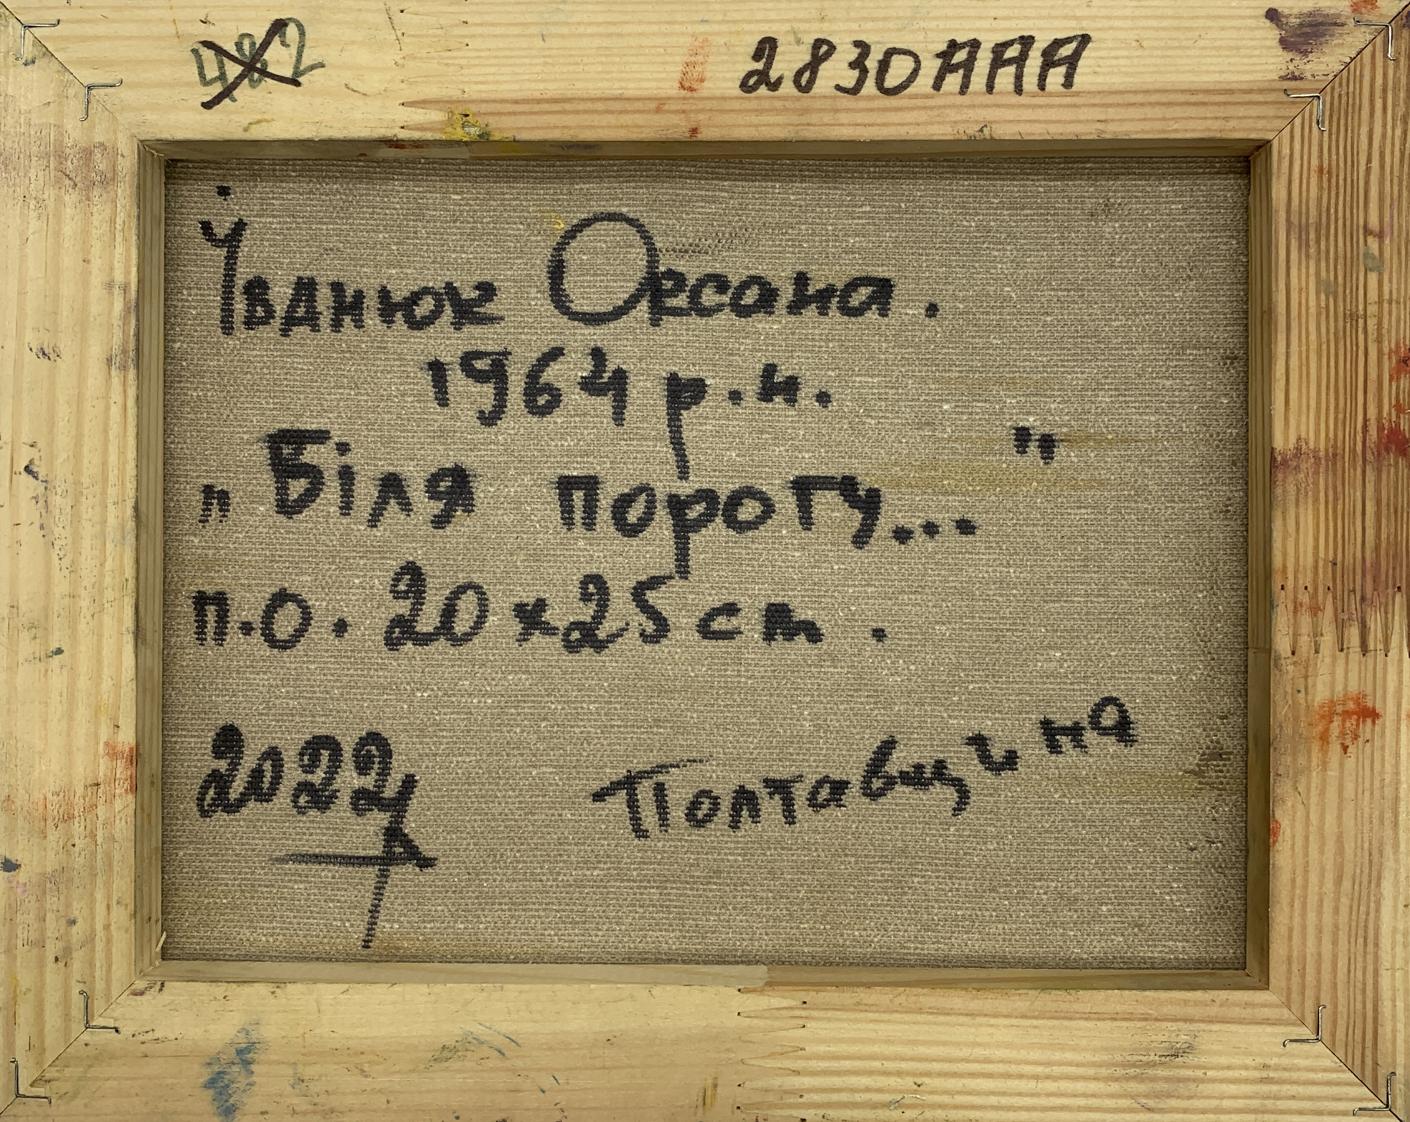 482 2830AAA
Іванюк Оксана.
1964 р.н.
„Біля порогу..."
п.о. 20x25cm.
2022р
Полтавщина